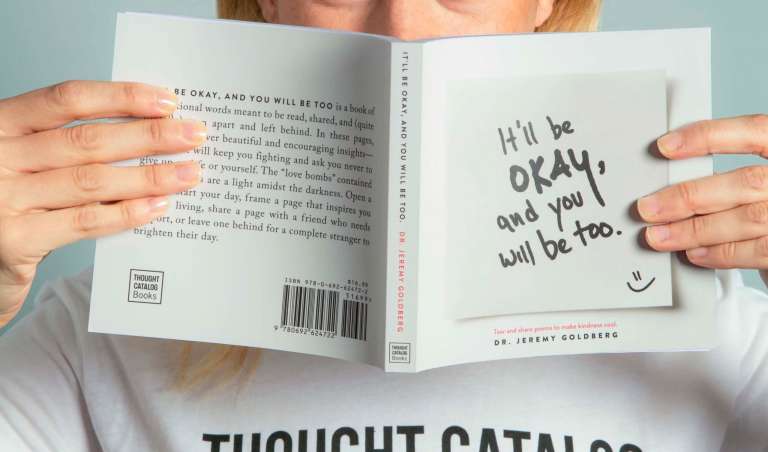 BE OKAY, AND YOU WILL BE TOO is a book of
ional words meant to be read, shared, and (quite
apart and left behind. In these pages,
ver beautiful and encouraging insights—
will keep you fighting and ask you never to
give up or yourself. The "love bombs" contained
are a light amidst the darkness. Open a
art your day, frame a page that inspires you
living, share a page with a friend who needs
port, or leave one behind for a complete stranger to
brighten their day.
THOUGHT
CATALOG
Books
ISBN 978-0-692-62472-2
$16.99
51699
9 780692 624722
IT'LL BE OKAY, AND YOU WILL BE TOO. DR. JEREMY GOLDBERG
THOUGHT
CATALOG
Books
It'll be
OKAY,
and you
will be too.
Tear and share poems to make kindness cool.
DR. JEREMY GOLDBERG
THOUGHT
CATALOG
Books
THOUGHT CATALOG